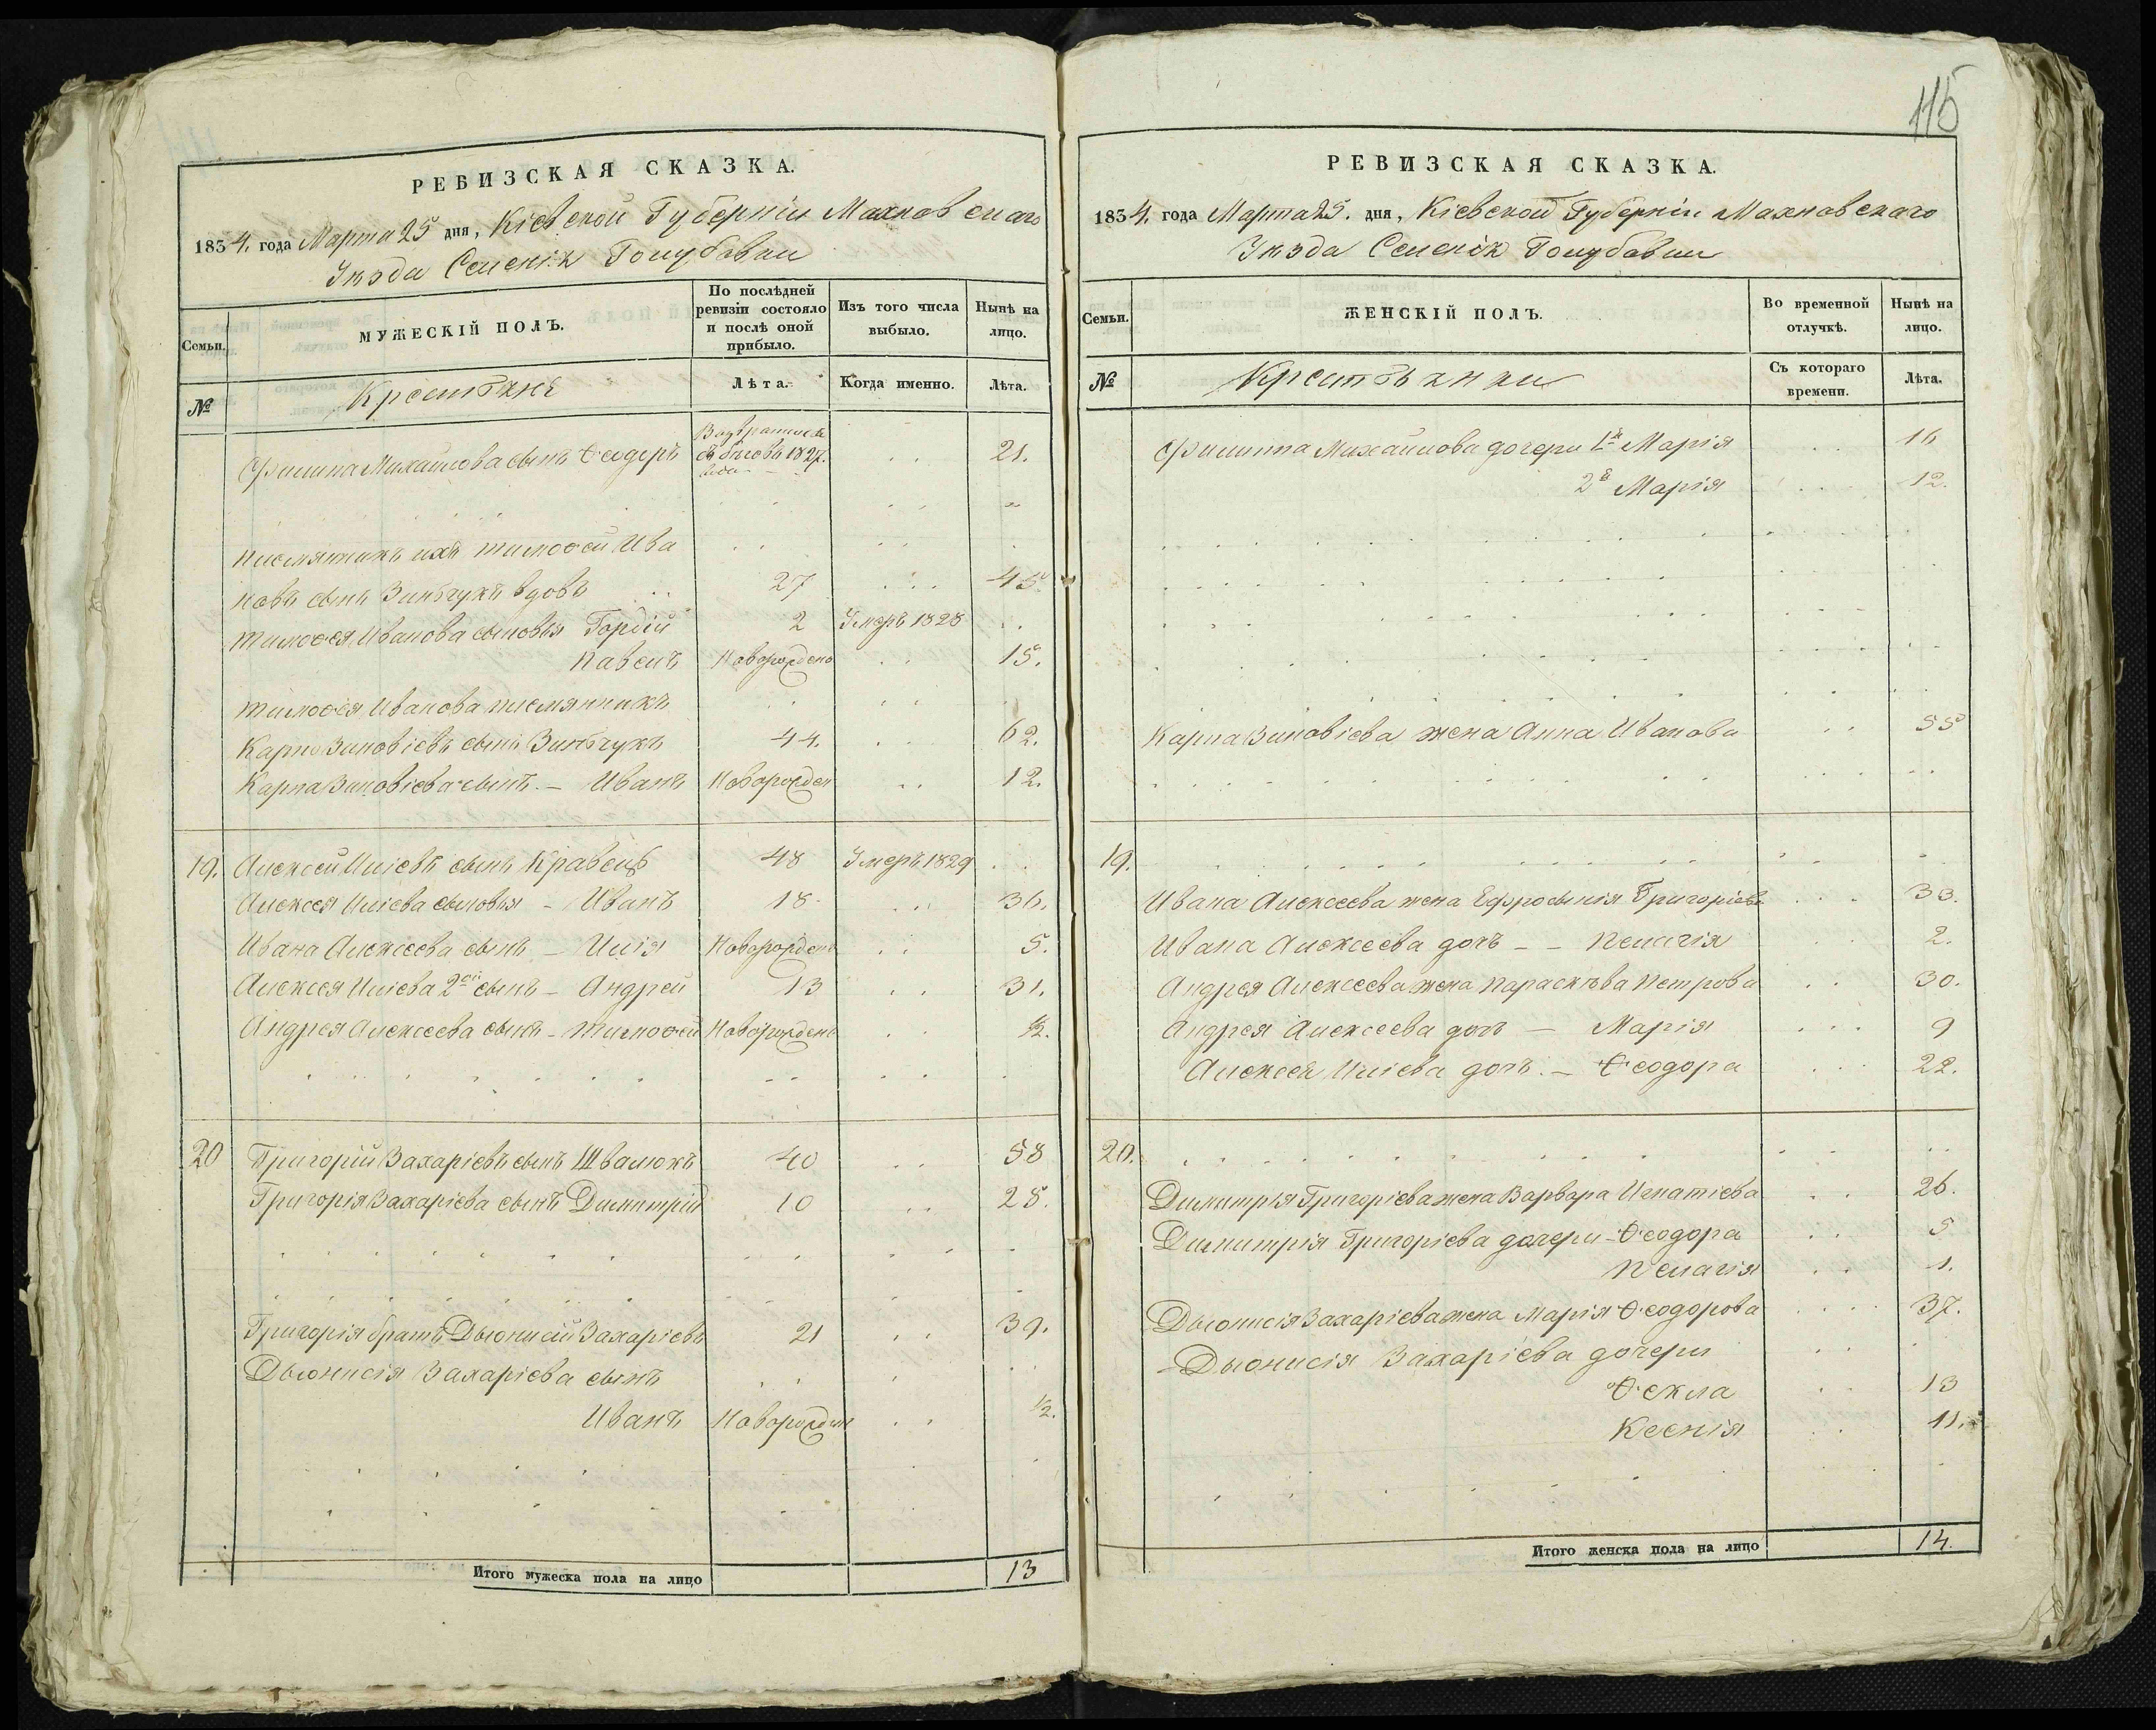 115
РЕВИЗСКАЯ СКАЗКА.
1834. года Марта 25 дня, Кіевской Губерніи Махновскаго
Уѣзда Селенія Голубовки
Семьи.
МУЖЕСКІЙ ПОЛЪ.
По послѣдней ревизіи состояло и послѣ оной прибыло.
Изъ того числа выбыло.
Нынѣ на лицо.
№
Крестьяне
Лѣта.
Когда именно.
Лѣта.
Филипа Михайлова сынъ Ѳеодоръ Возвратился съ бѣговъ 1827. 21.
племянникъ ихъ Тимоѳей Ива
новъ сынъ Зинчукъ вдовъ 27 45
Тимоѳея Иванова сыновья Гордій 2 Умеръ 1828
Павелъ Новорожденъ 15.
Тимоѳея Иванова племянникъ
Карпъ Зиновіевъ сынъ Зинчукъ 44. 62.
Карпа Зиновіева сынъ. – Иванъ Новорожден 12.
19. Алексей Иліевъ сынъ Кравецъ 48 Умеръ 1829
Алексея Иліева сыновья – Иванъ 18. 36.
Ивана Алексеева сынъ – Илія Новорожденъ 5.
Алексея Иліева 2ой сынъ – Андрей 13 31.
Андрея Алексеева сынъ – Тимоѳей Новорожденъ 1/2.
20 Григорій Захаріевъ сынъ Швалюкъ 40 58
Григорія Захаріева сынъ Димитрій 10 28.
Григорія братъ Діонисій Захаріевъ 21 39.
Дыонисія Захаріева сынъ
Иванъ Новорожден 1/2.
Итого мужеска пола на лицо 13
РЕВИЗСКАЯ СКАЗКА.
1834. года Марта 25. дня, Кіевской Губерніи Махновскаго
Уѣзда Селенія Голубовки
Семьи.
ЖЕНСКІЙ ПОЛЪ.
Во временной отлучкѣ.
Нынѣ на лицо.
№
Крестьянки
Съ котораго времени.
Лѣта.
Филиппа Михайлова дочери 1я Марія 16
2я Марія 12.
Карпа Зиновіева жена Анна Иванова 55
19.
Ивана Алексеева жена Ефросынія Григоріева 33.
Ивана Алексеева дочь – – Пелагія 2.
Андрея Алексеева жена Параскѣва Петрова 30.
Андрея Алексеева дочь – Марія 9
Алексея Иліева дочь. – Ѳеодора 22.
20.
Димитрія Григоріева жена Варвара Игнатіева 26.
Димитрія Григоріева дочери – Ѳеодора 5
Пелагія 1.
Дыонисія Захаріева жена Марія Ѳеодорова 37.
Дыонисія Захаріева дочери
Ѳекла 13
Ксенія 11.
Итого женска пола на лицо 14.